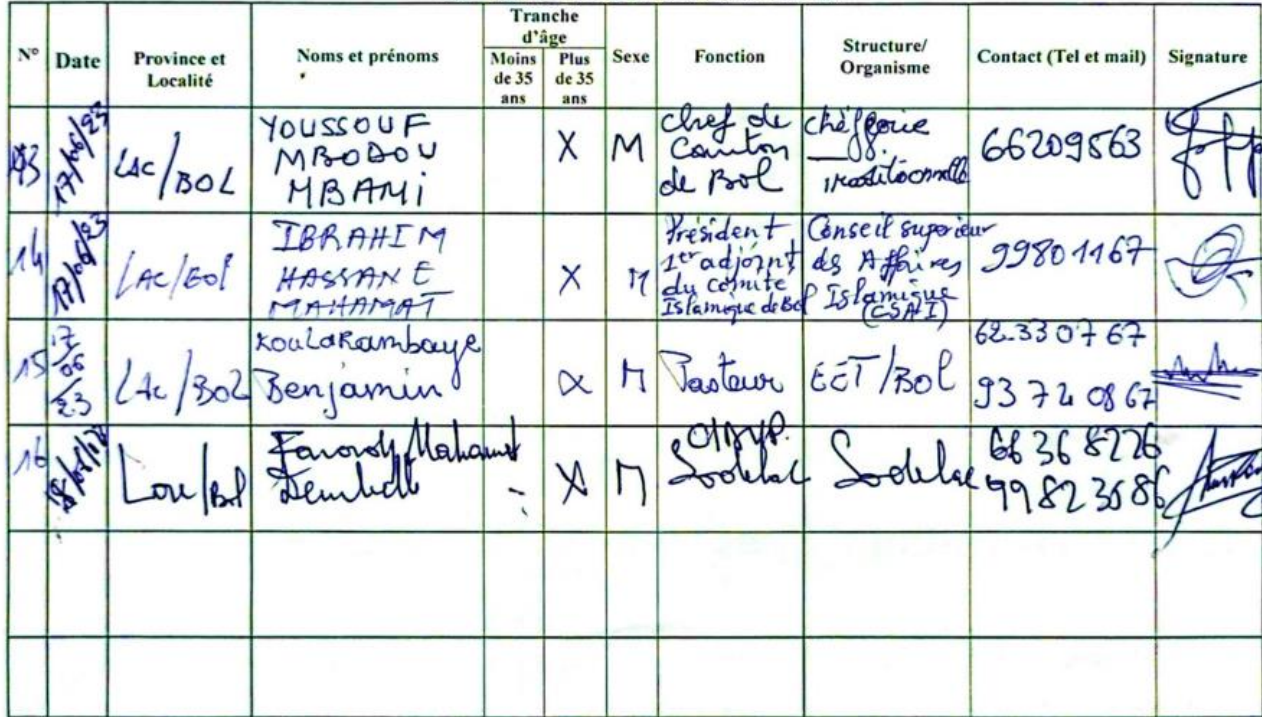 N° Date Province et Localité Noms et prénoms Tranche d'âge Moins de 35 ans Plus de 35 ans Sexe Fonction Structure/ Organisme Contact (Tel et mail) Signature
13 17/06/23 LAC/BOL YOUSSOUF MBODOU MBAMI X M Chef de Canton de Bol Chefferie traditionnelle 66209563
14 17/06/23 LAC/Bol IBRAHIM HASSANE MAHAMAT X M Président 1er adjoint du comité Islamique de Bol Conseil superieur des Affaires Islamique (CSAI) 99801167
15 17/06/23 LAC/BOL KoulaRambaye Benjamin X M Pasteur EET/BOL 62.33 07 67 93 72 08 67
16 /Bol Mahamat X M Sodelac Sodelac 66 36 82 26